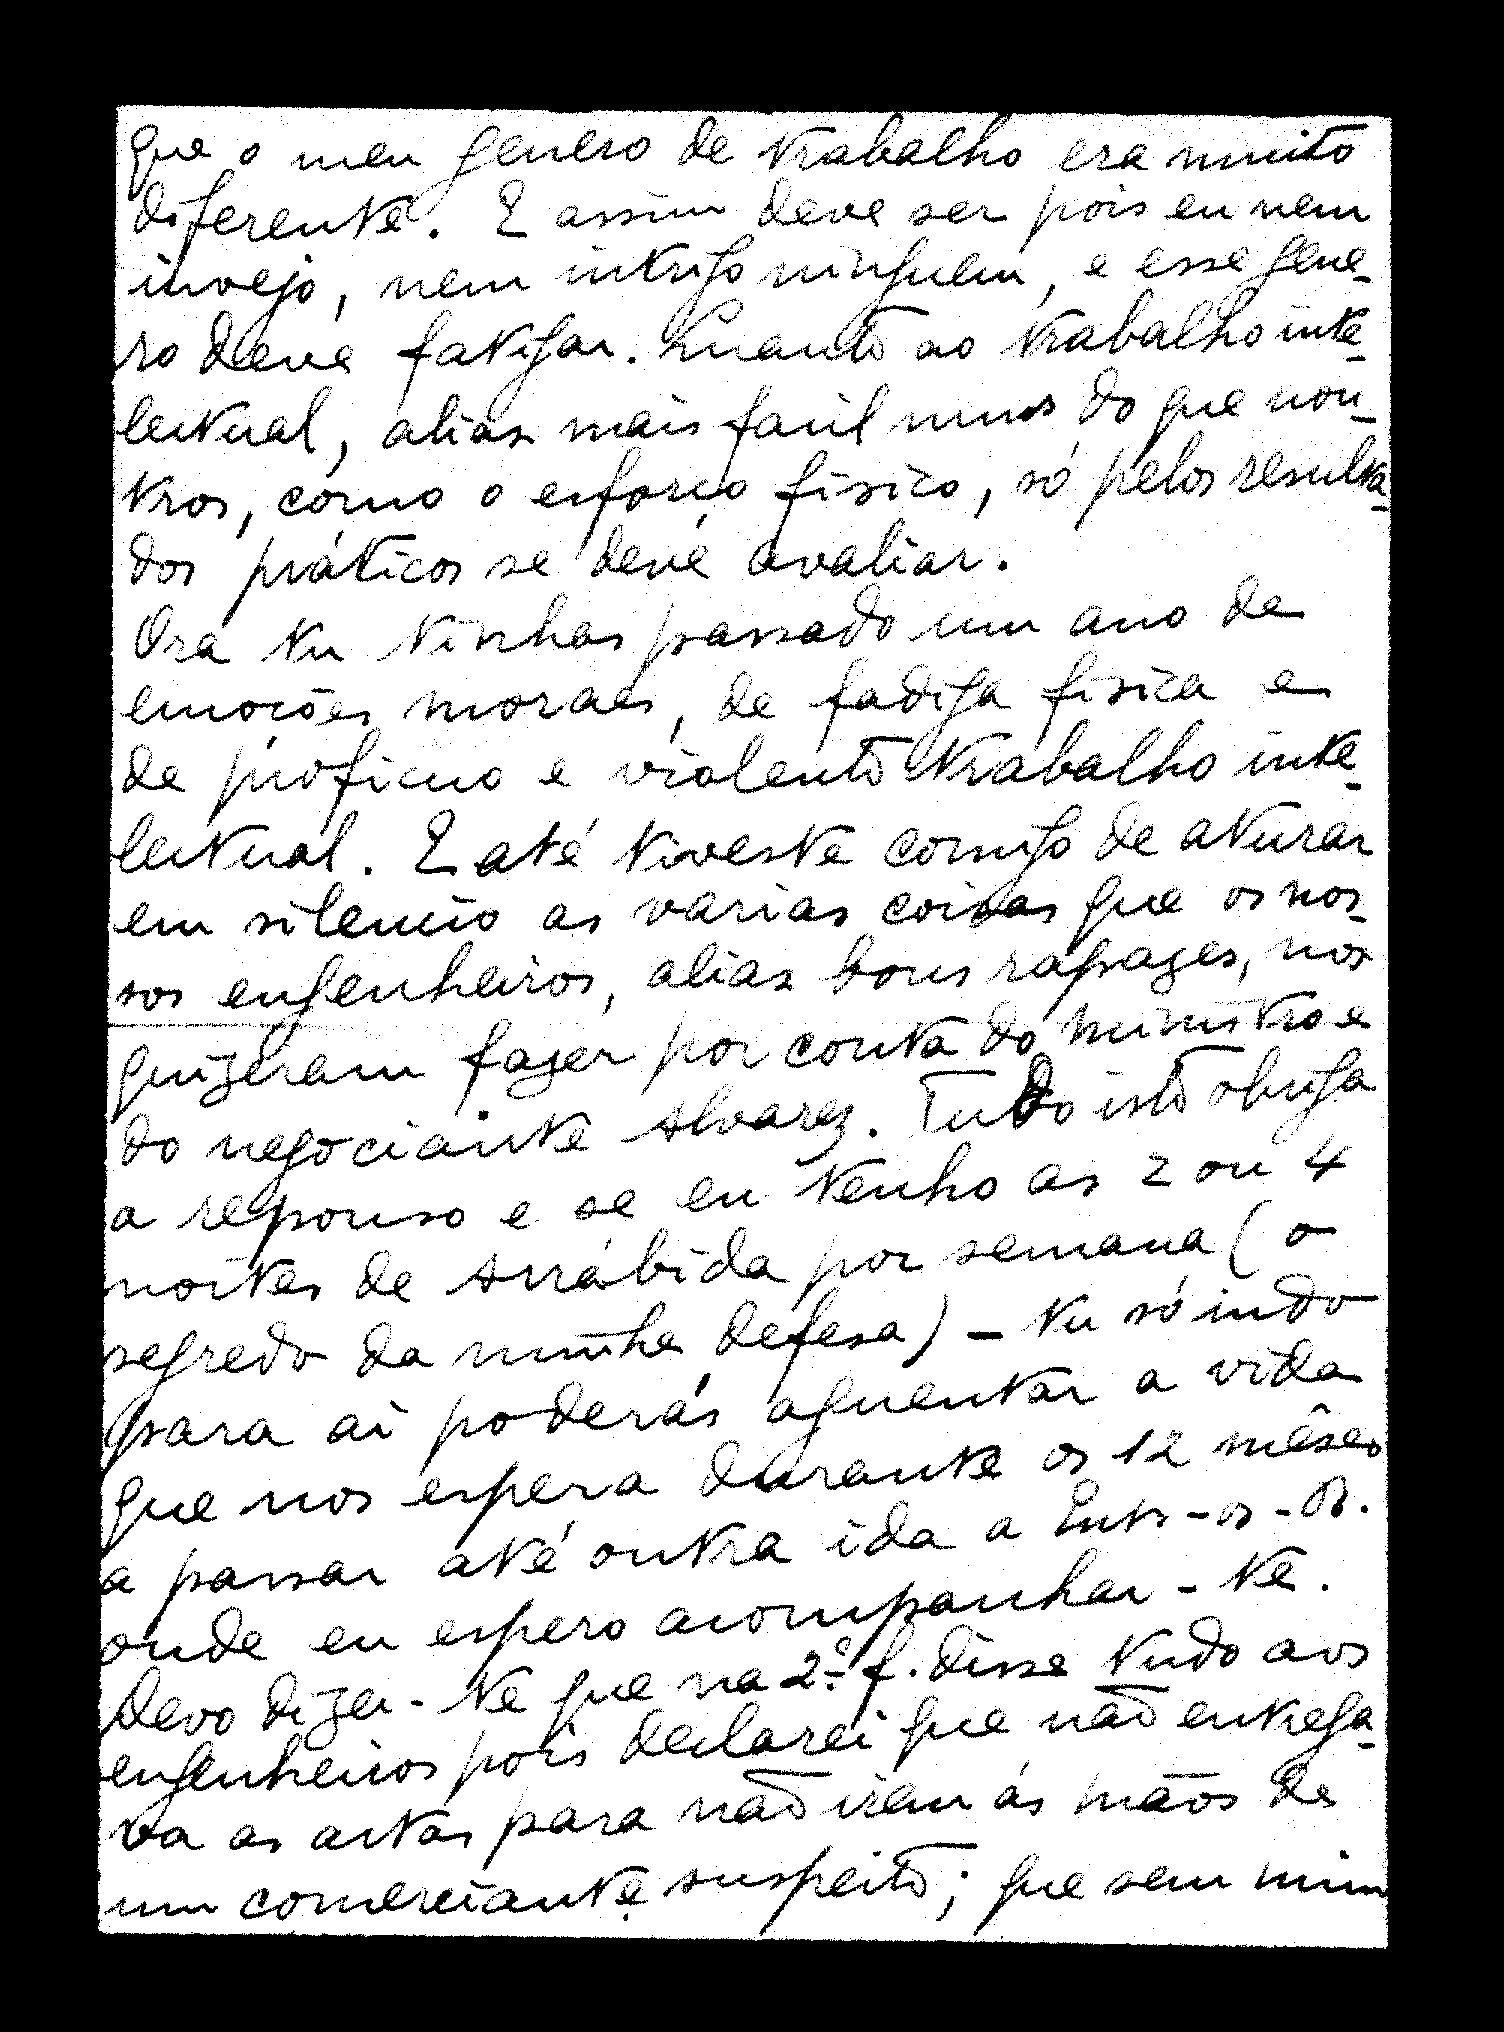 que o meu genero de trabalho era muito
diferente. E assim deve ser pois eu nem
invejo, nem intrigo ninguem, e esse gene-
ro deve fatigar. Quanto ao trabalho inte-
lectual, alias mais facil nuns do que nou-
tros, como o esforço fisico, só pelos resulta-
dos práticos se deve avaliar.
Ora tu tinhas passado um ano de
emoções moraes, de fadiga fisica e
de proficuo e violento trabalho inte-
lectual. E até tiveste comigo de aturar
em silencio as varias coisas que os nos-
sos engenheiros, alias bons rapazes, nos
quizeram fazer por conta do ministro e
do negociante Alvarez. Tudo isto obriga
a repouso e se eu tenho as 2 ou 4
noites de Arrábida por semana (o
segredo da minha defesa) - tu só indo
para ai poderás aguentar a vida
que nos espera durante os 12 mêses
a passar até outra ida a Entr-os-R.
onde eu espero acompanhar-te.
Devo dizer-te que na 2.ª f. disse tudo aos
engenheiros pois declarei que não entrega-
va as actas para não irem ás mãos de
um comerciante suspeito; que sem mim